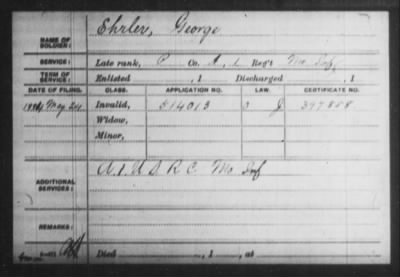 NAME OF SOLDIER: Ehrler, George
SERVICE: Late rank, P Co. A, 1 Reg't Mo Inf,
TERM OF SERVICE: Enlisted , 1 Discharged , 1
DATE OF FILING. CLASS. APPLICATION NO. LAW. CERTIFICATE NO.
1884 May 24 Invalid, 514013 J 397888
Widow,
Minor,
ADDITIONAL SERVICES: A. 1 U S R C Mo Inf
REMARKS:
Died , 1 , at